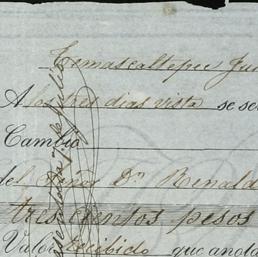 Temascaltepec Jun
A los tres dias vista se se
Cambio
del Señor Dn Renald
trescientos pesos
Valor recibido que anota